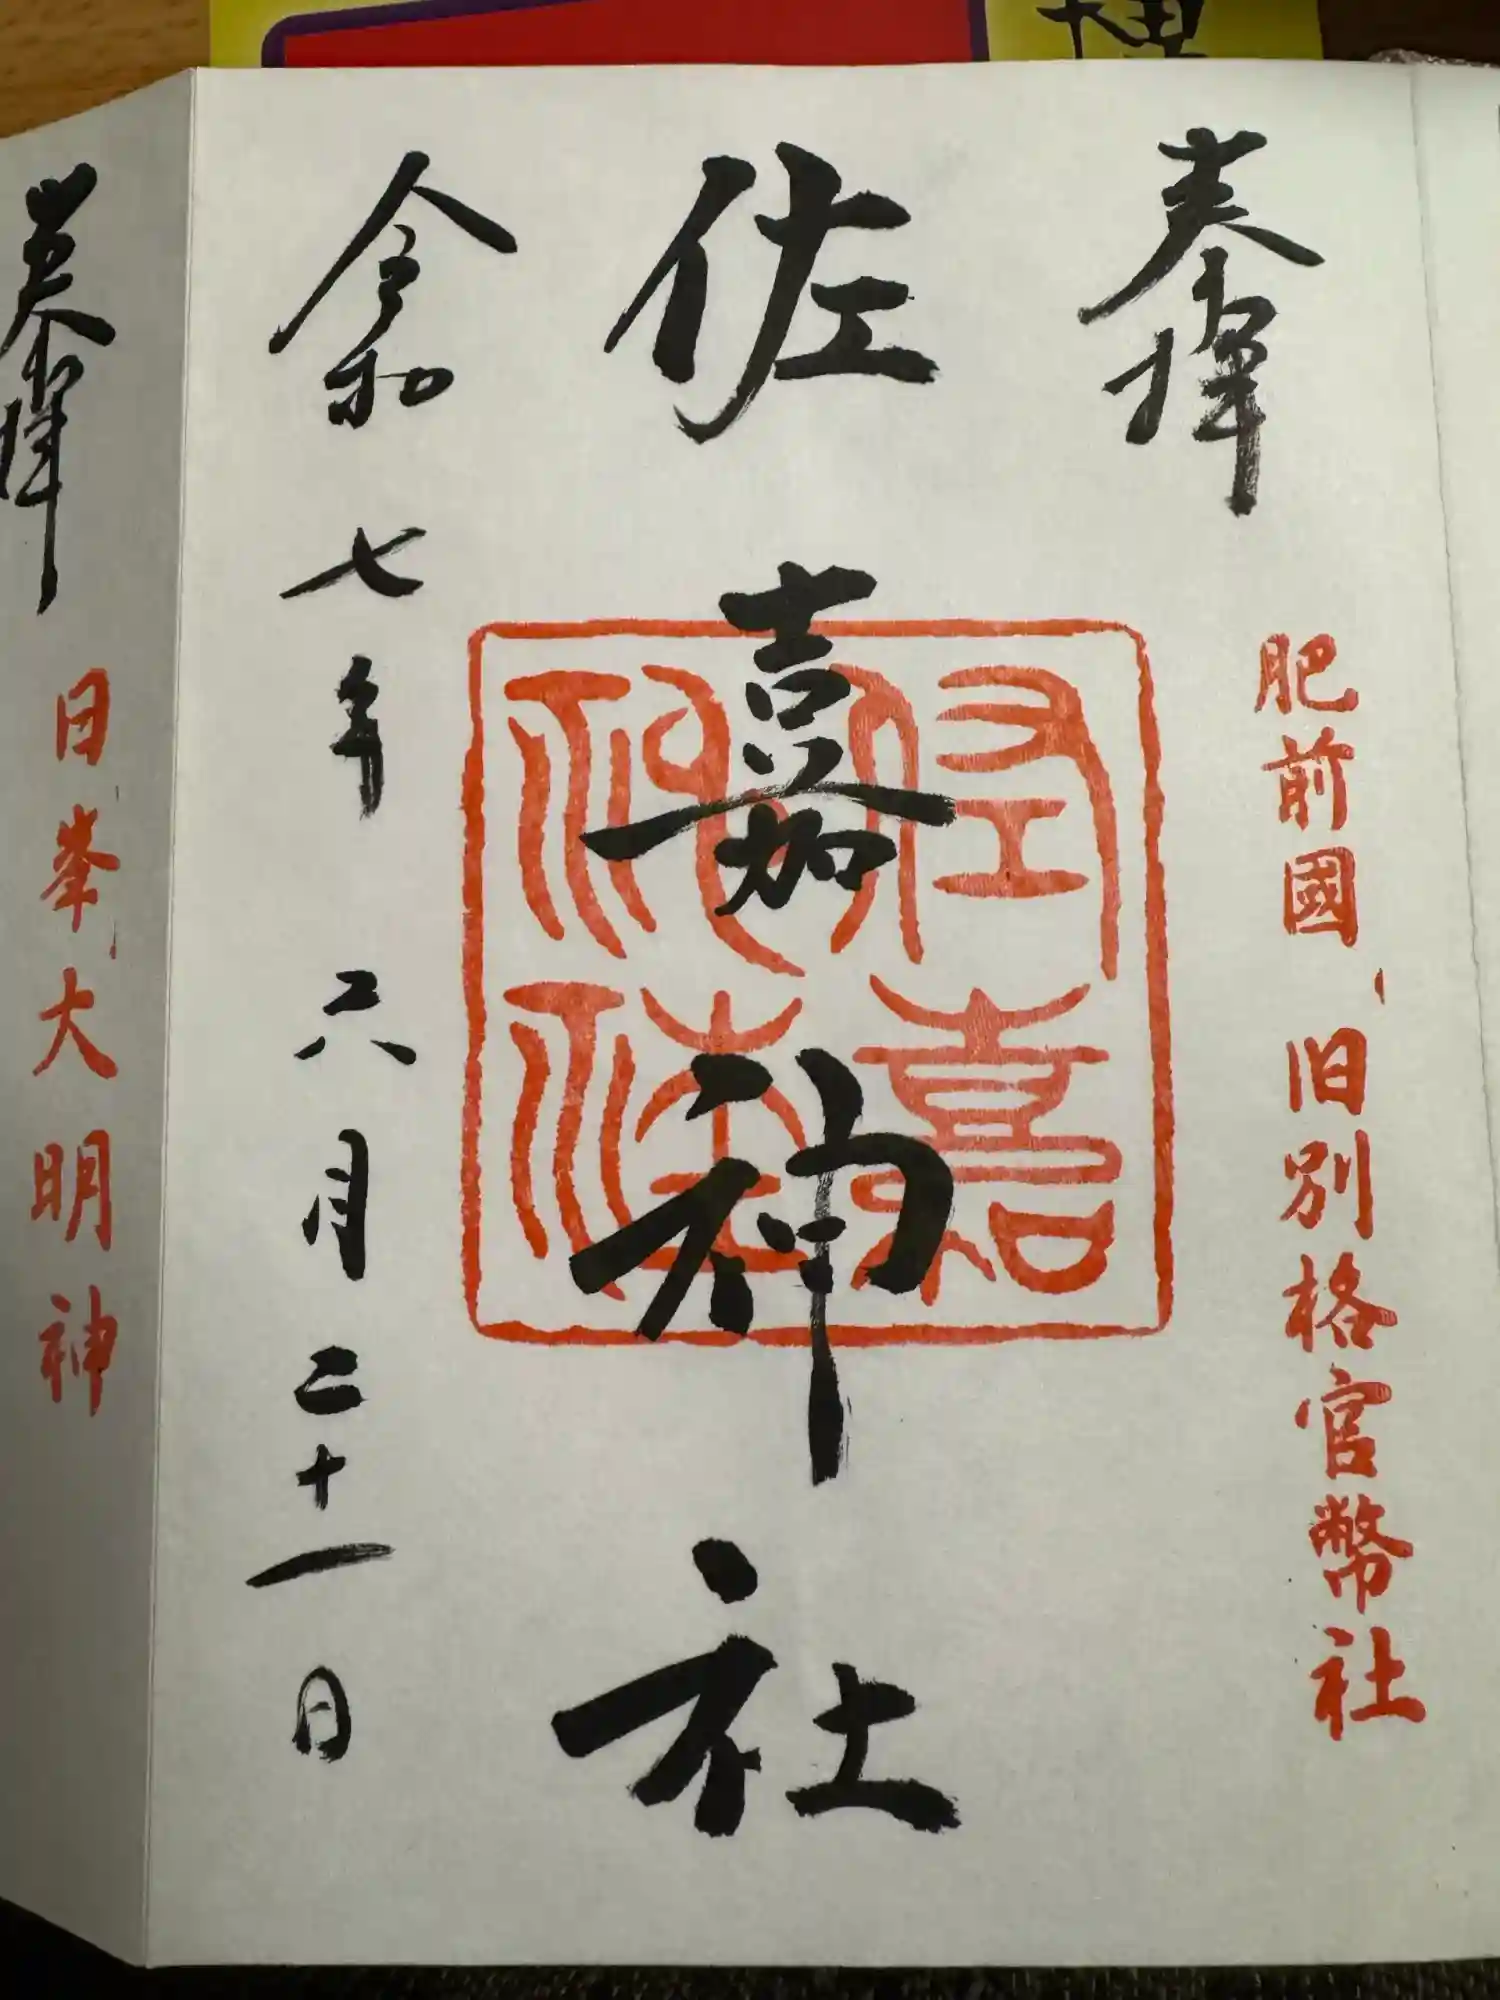 奉拝
肥前國 旧別格官幣社
佐嘉神社
佐嘉神社
令和七年六月二十一日
奉拝
日峯大明神